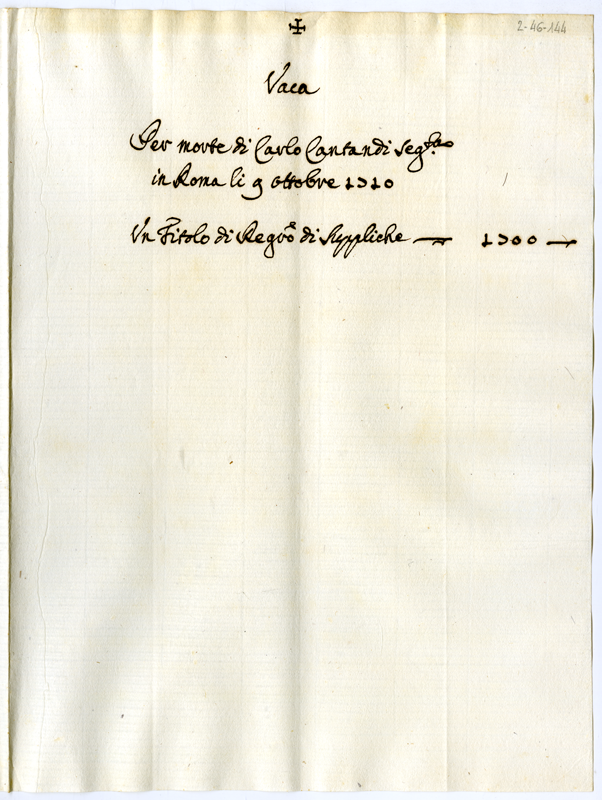 2-46-144
Vaca
Per morte di Carlo Cantandi seg.ta
in Roma li 9 ottobre 1710
Un Titolo di Regro di Suppliche — 1700 —